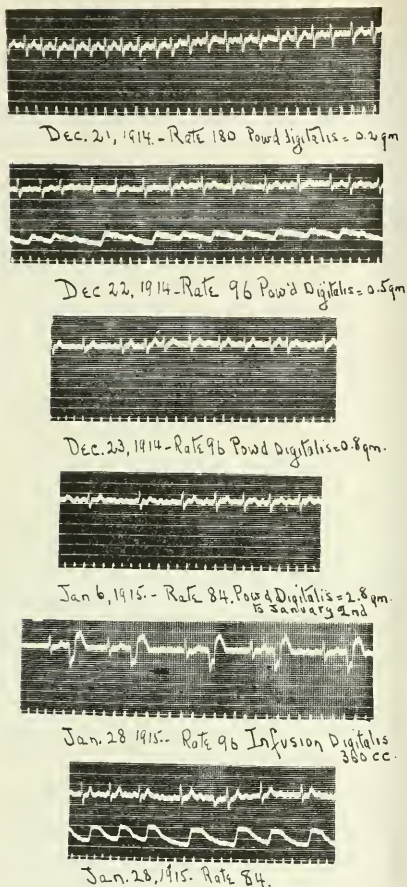 Dec. 21, 1914. - Rate 180 Powd digitalis = 0.2 gm
Dec 22, 1914 - Rate 96 Pow'd Digitalis = 0.5 gm
Dec. 23, 1914 - Rate 96 Powd Digitalis = 0.8 gm.
Jan 6, 1915. - Rate 84. Powd Digitalis = 2.8 gm.
to January 2nd
Jan. 28 1915. - Rate 96 Infusion Digitalis
360 cc.
Jan. 28, 1915. Rate 84.